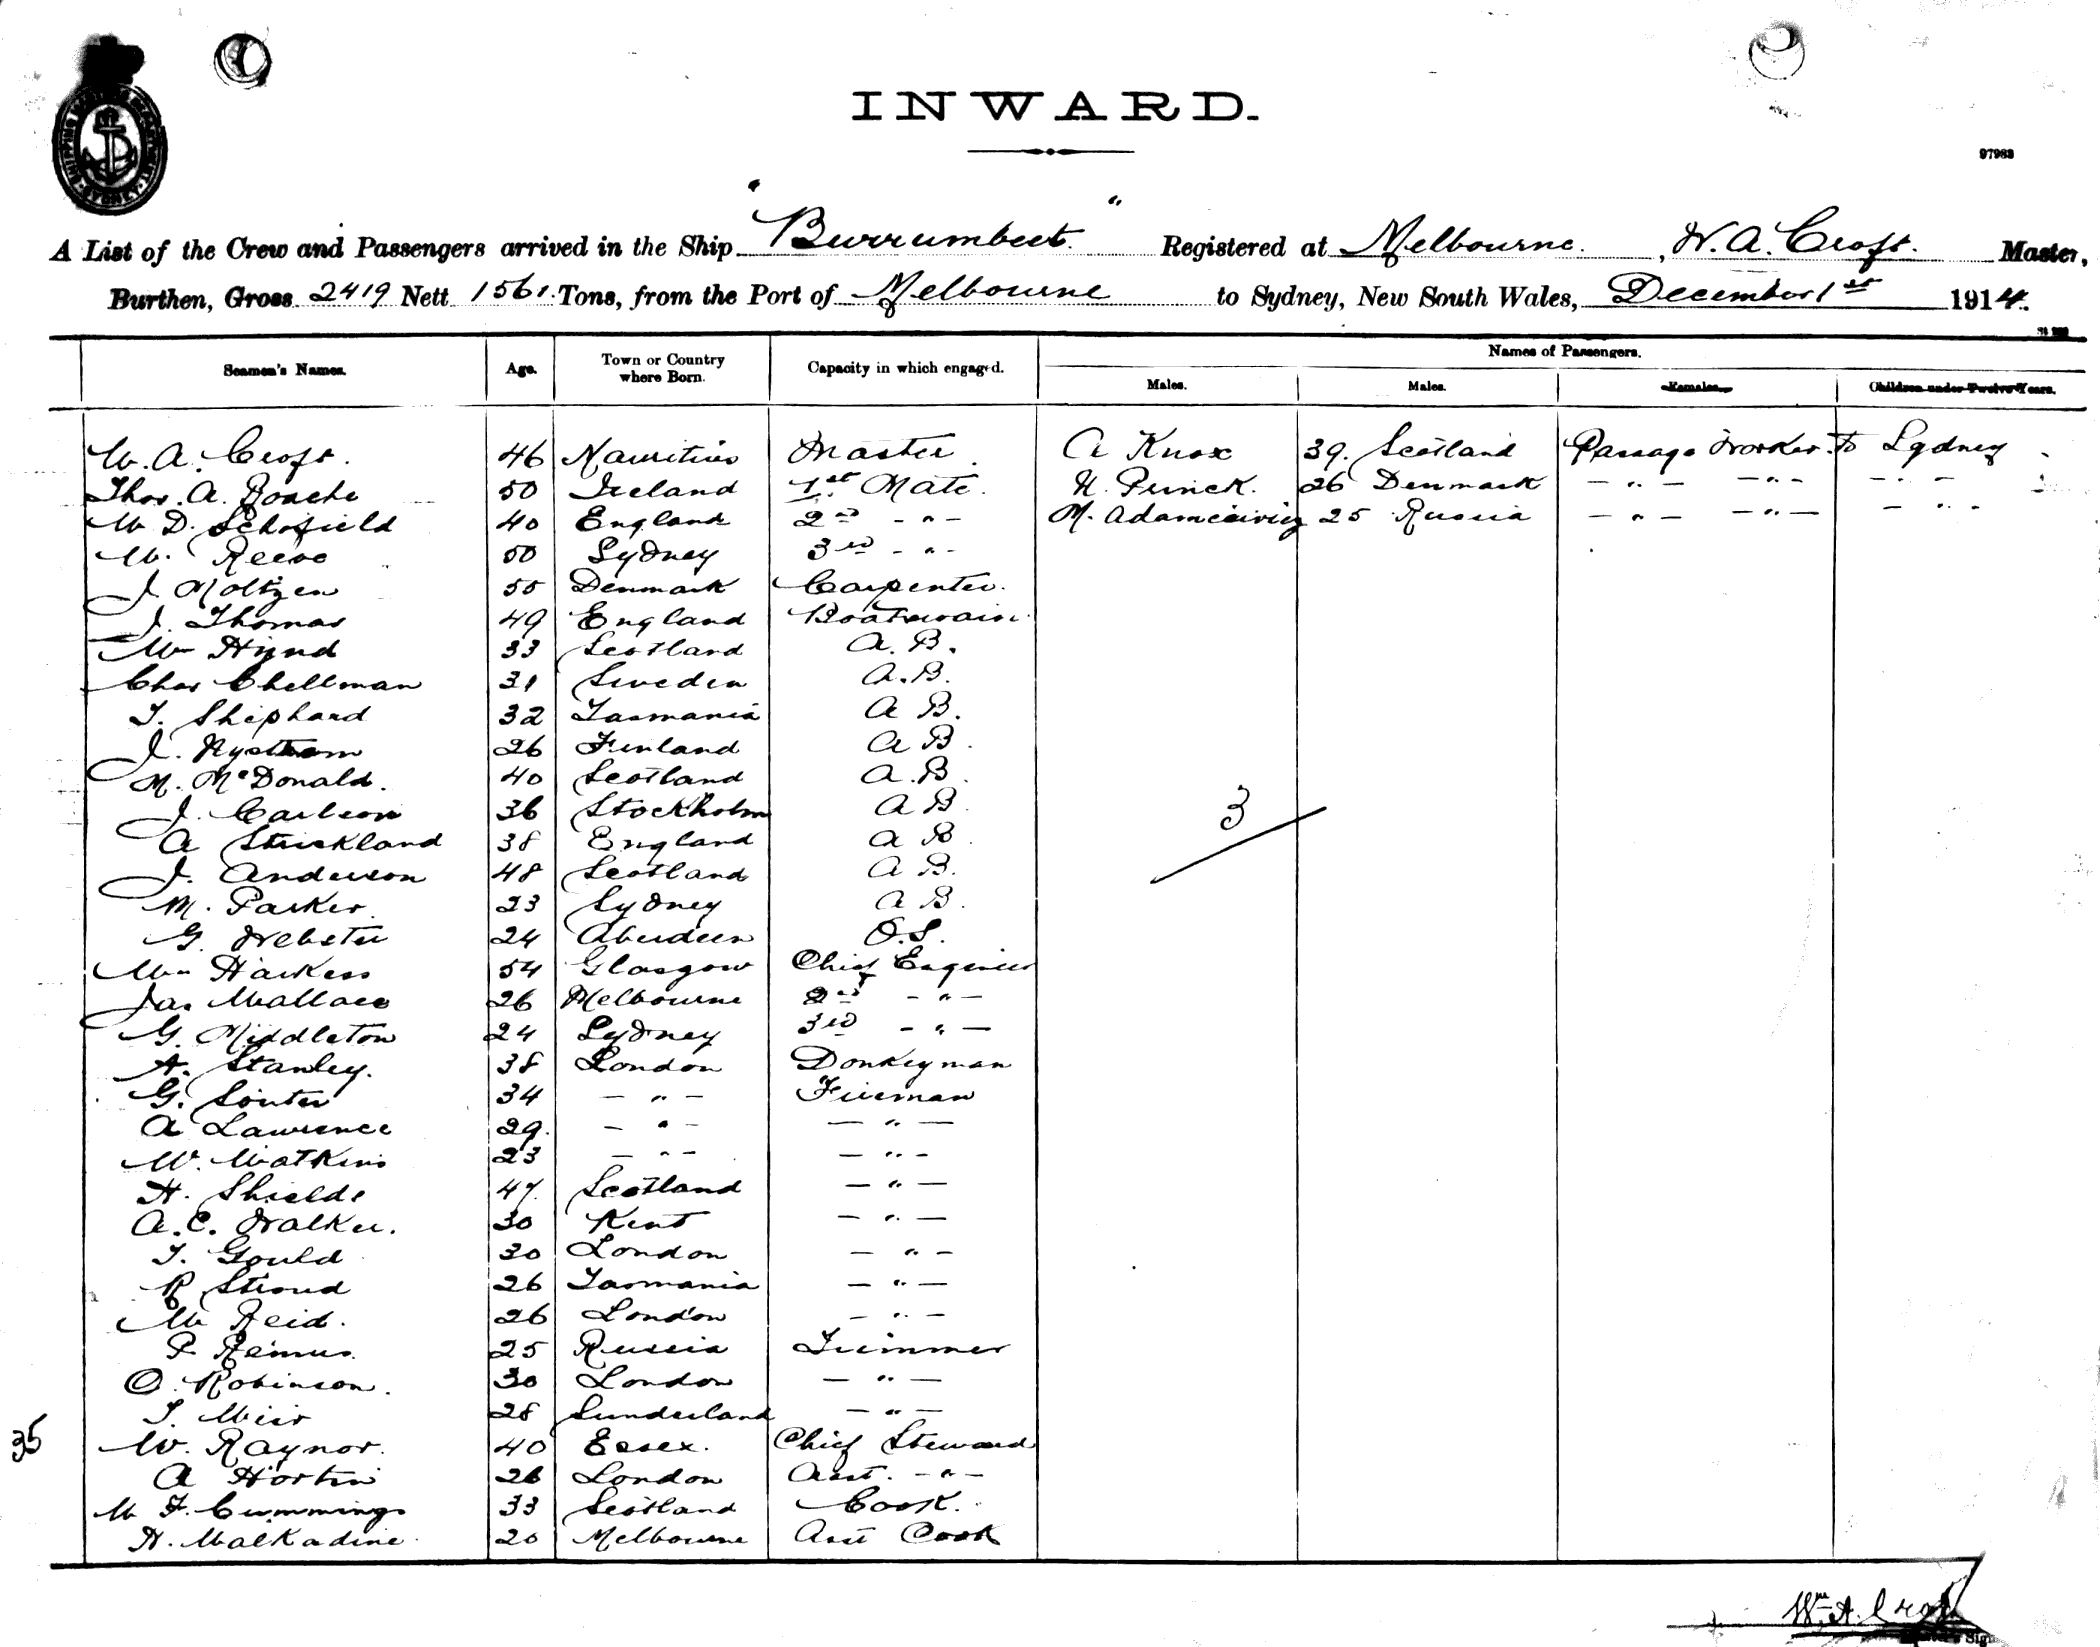 INWARD.
97983
A List of the Crew and Passengers arrived in the Ship "Burrumbeet" Registered at Melbourne. , W. A. Croft. Master,
Burthen, Gross 2419 Nett 1561. Tons, from the Port of Melbourne to Sydney, New South Wales, December 1st 1914.
Seamen's Names. Age. Town or Country where Born. Capacity in which engaged. Names of Passengers.
Males. Males. Females. Children under Twelve Years.
W. A. Croft. 46 Mauritius Master A Knox 39. Scotland Passage Worker to Sydney
Thos. A. Roache 50 Ireland 1st Mate. H. Princk. 26 Denmark - " - - " - - " -
W D. Schofield 40 England 2nd - " - M. Adamceiviez 25 Russia - " - - " - - " -
W. Reeve 50 Sydney 3rd - " -
J Moltzen 55 Denmark Carpenter.
J. Thomas 49 England Boatswain.
Wm Hynd 33 Scotland A. B.
Chas Chellman 31 Sweden A. B.
T. Shephard 32 Tasmania A B.
J. Nystrom 26 Finland A B.
M. McDonald. 40 Scotland A. B.
J. Carlson 36 Stockholm A B
A Strickland 38 England A B
J. Anderson 48 Scotland A B.
M. Parker 23 Sydney A B.
G. Webster 24 Aberdeen O.S.
Wm Harkess 54 Glasgow Chief Engineer
Jas Wallace 26 Melbourne 2nd - " -
G. Middleton 24 Sydney 3rd - " -
A. Stanley. 38 London Donkeyman
G. Souter 34 - " - Fireman
A Lawrence 29. - " - - " -
W. Watkins 23 - " - - " -
H. Shields 47. Scotland - " -
A. C. Walker. 30 Kent - " -
T. Gould 30 London - " -
R Stroud 26 Tasmania - " -
W Reid. 26 London - " -
P. Remus. 25 Russia Trimmer
O. Robinson. 30 London - " -
T. Weir 28 Sunderland - " -
W. Raynor. 40 Essex. Chief Steward
A Hortin 26 London Asst. - " -
W F. Cummings 33 Scotland Cook.
H. Walkadine. 20 Melbourne Asst Cook
3
35
Wm. A. Croft